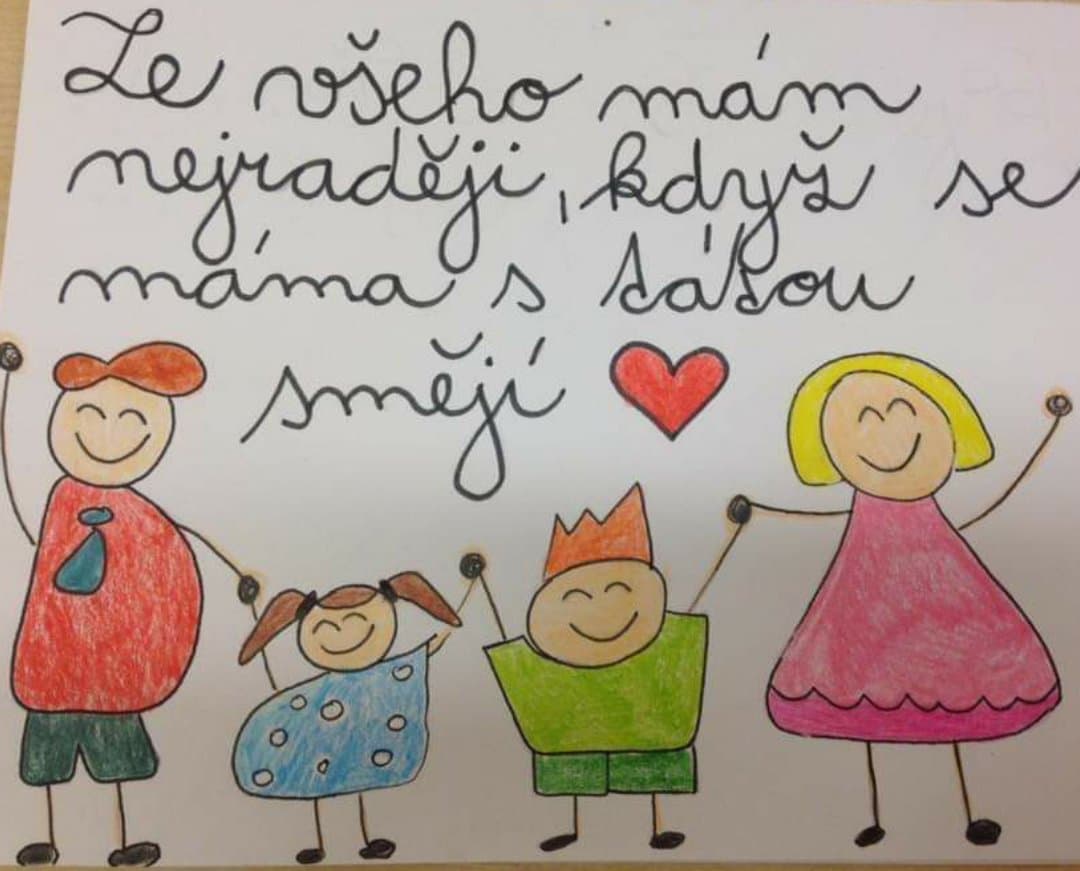 Ze všeho mám
nejraději, když se
máma s tátou
smějí